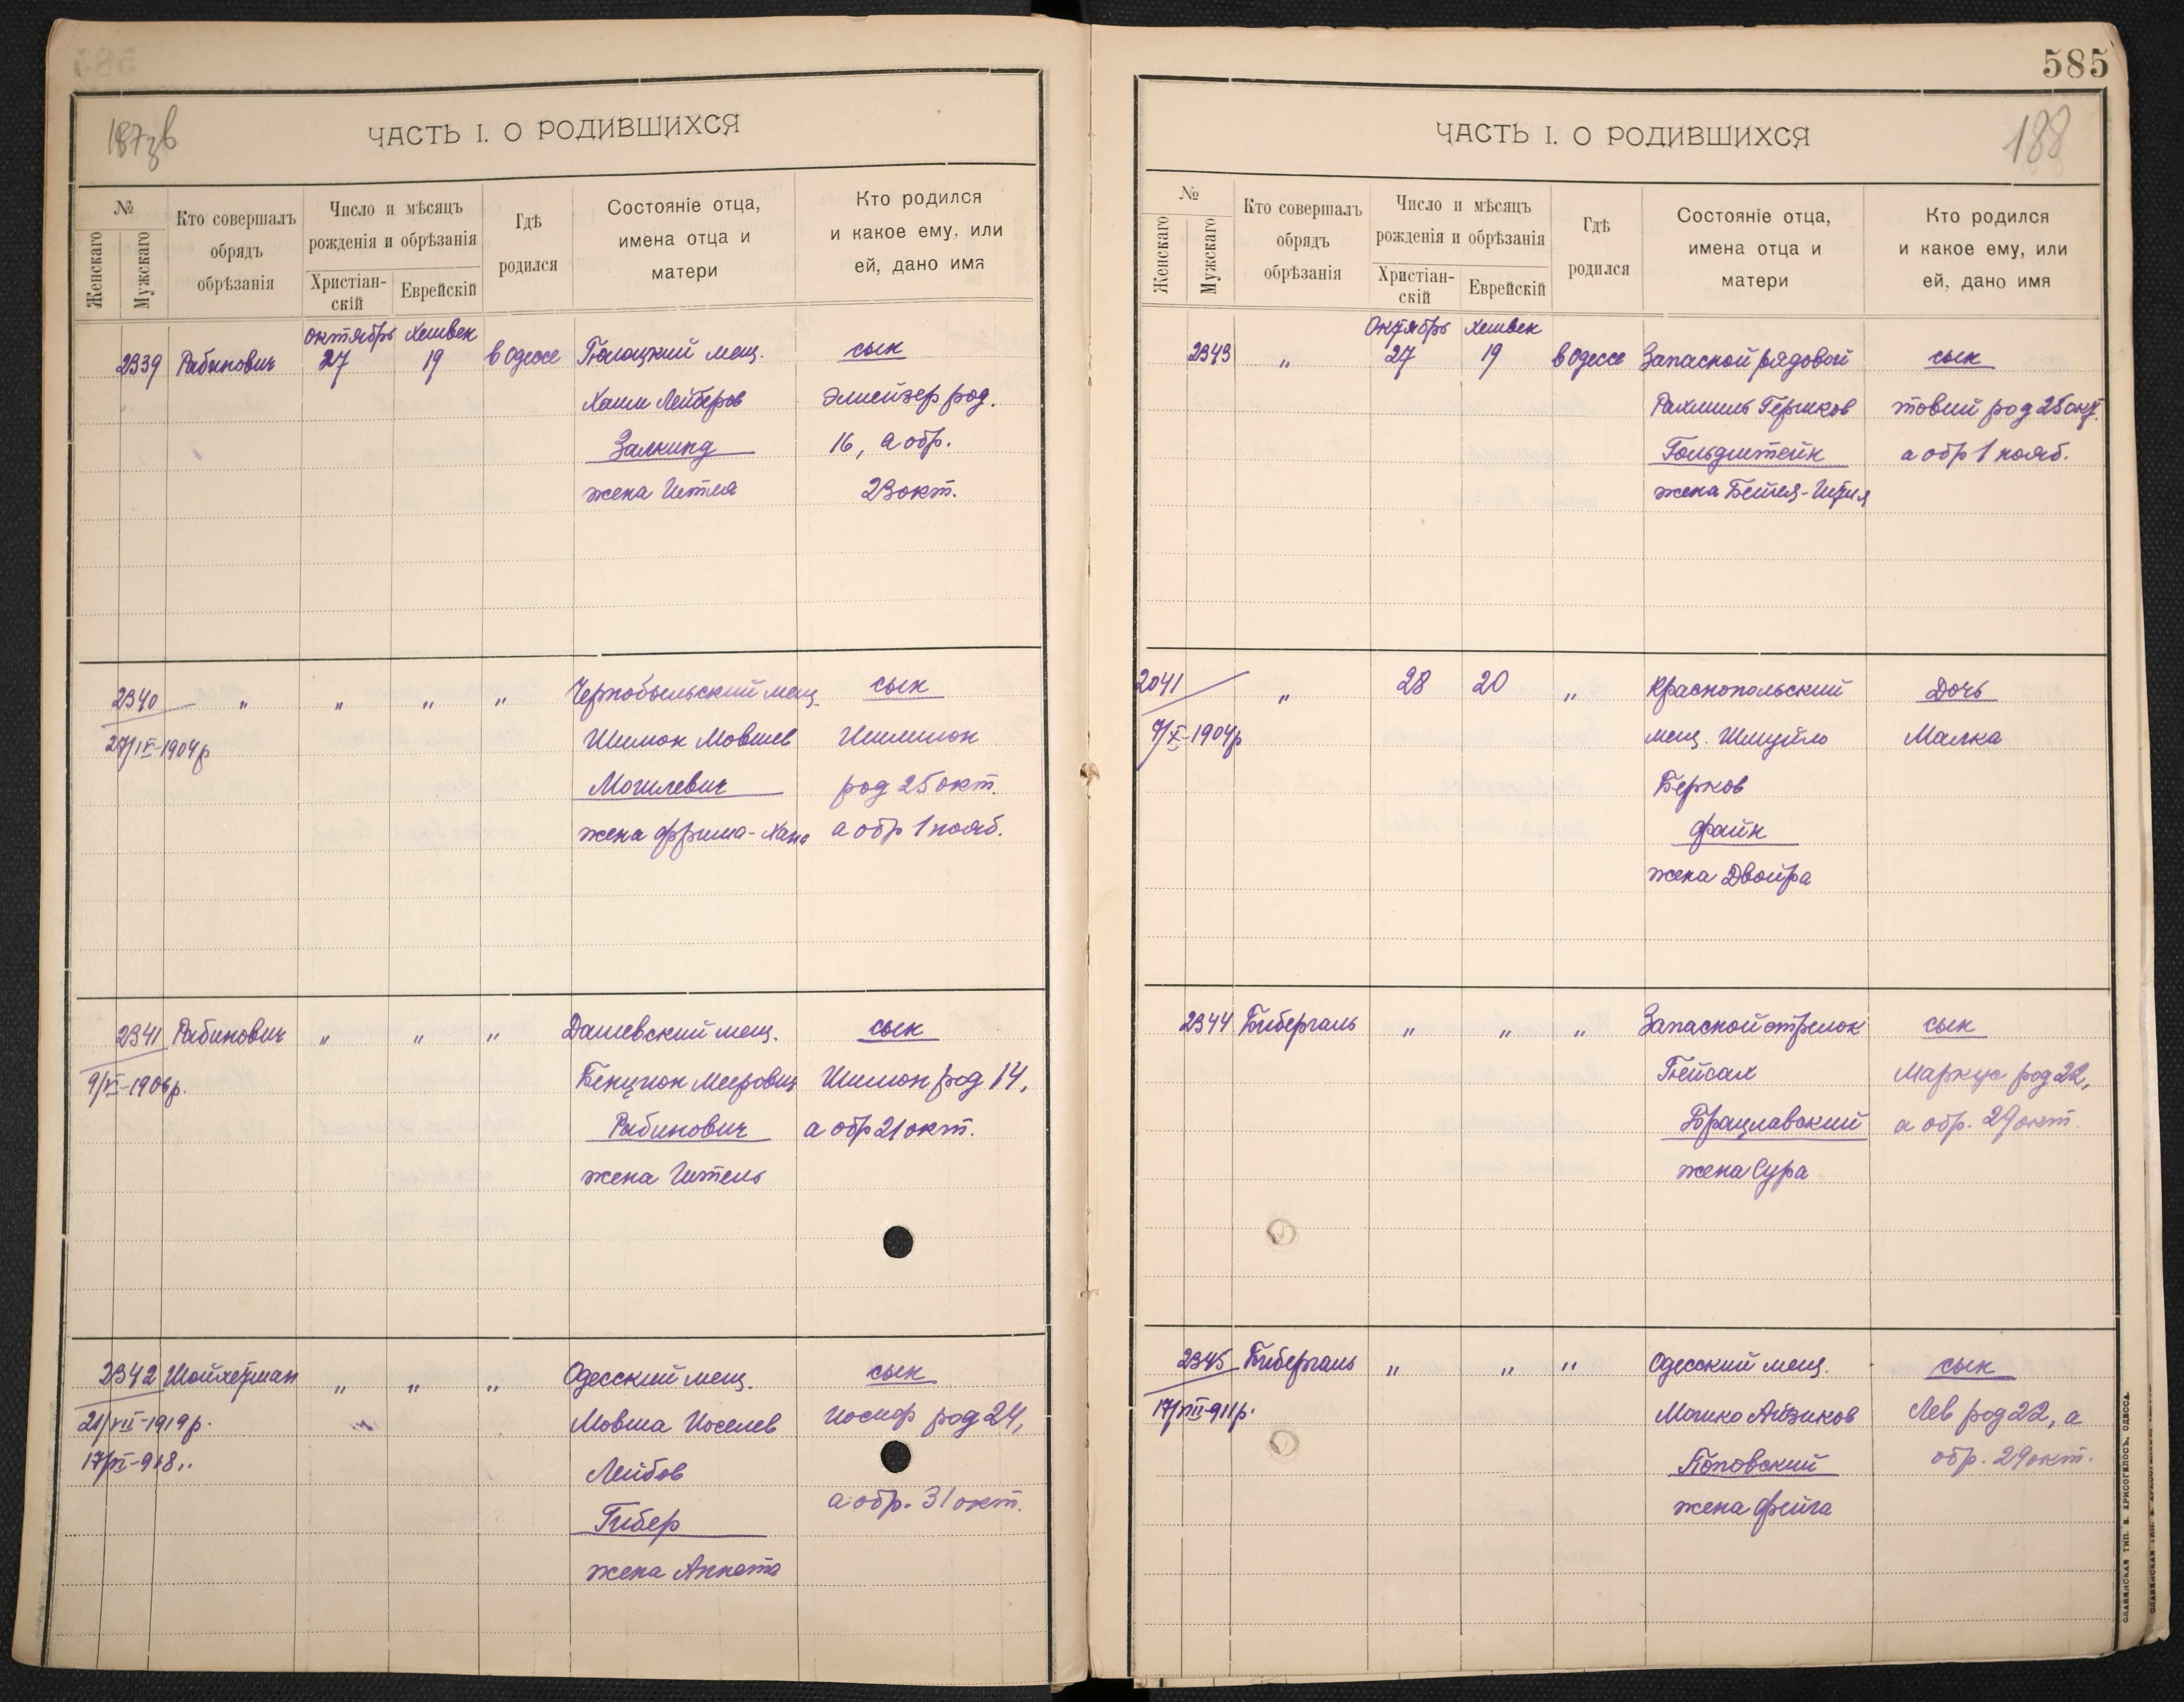 187зв
ЧАСТЬ I. О РОДИВШИХСЯ
№
Женскаго
Мужскаго
Кто совершалъ
обрядъ
обрѣзанія
Число и мѣсяцъ
рожденія и обрѣзанія
Христіан-
скій
Еврейскій
Гдѣ
родился
Состояніе отца,
имена отца и
матери
Кто родился
и какое ему, или
ей, дано имя
октябрь хешвен
2339 Рабинович 27 19 в Одессе Полоцкий мещ. сын
Хаим Лейберов Элиейзер род.
Залкинд 16, а обр.
жена Гитля 23 окт.
2340 " " " " Чернобыльский мещ. сын
27/IV-1904р Шимон Мовшев Шимшон
Могилевич род 25 окт.
жена Фрима-Хана а обр 1 нояб.
2341 Рабинович " " " Дашевский мещ. сын
9/VI-1906р. Бенцион Меерович Шимон род 14,
Рабинович а обр 21 окт.
жена Гитель
2342 Шойхетман " " " Одесский мещ. сын
21/VII-1919р. Мовша Иоселев Иосиф род 24,
17/VI-918.. Лейбов
а обр. 31 окт.
Гибер
жена Аннета
585
188
ЧАСТЬ I. О РОДИВШИХСЯ
№
Женскаго
Мужскаго
Кто совершалъ
обрядъ
обрѣзанія
Число и мѣсяцъ
рожденія и обрѣзанія
Христіан-
скій
Еврейскій
Гдѣ
родился
Состояніе отца,
имена отца и
матери
Кто родился
и какое ему, или
ей, дано имя
Октябрь хешвен
2343 " 27 19 в Одессе Запасной рядовой сын
Рахмиль Гершков товий род 25 окт.
Гольдштейн а обр 1 нояб.
жена Бейля-Гитля
2041 " 28 20 " Краснопольский Дочь
9/X-1904р мещ. Шмуйло Малка
Берков
Файн
жена Двойра
2344 Бибергаль " " " Запасной стрелок сын
Пейсах Маркус род 22,
Брацлавский а обр. 29 окт.
жена Сура
2345 Бибергаль " " " Одесский мещ. сын
17/VIII-911р. Мошко Айзиков Лев род 22, а
Поповский обр. 29 окт.
жена Фейга
СЛАВЯНСКАЯ ТИП. Н. ХРИСОГЕЛОСЪ, ОДЕССА.